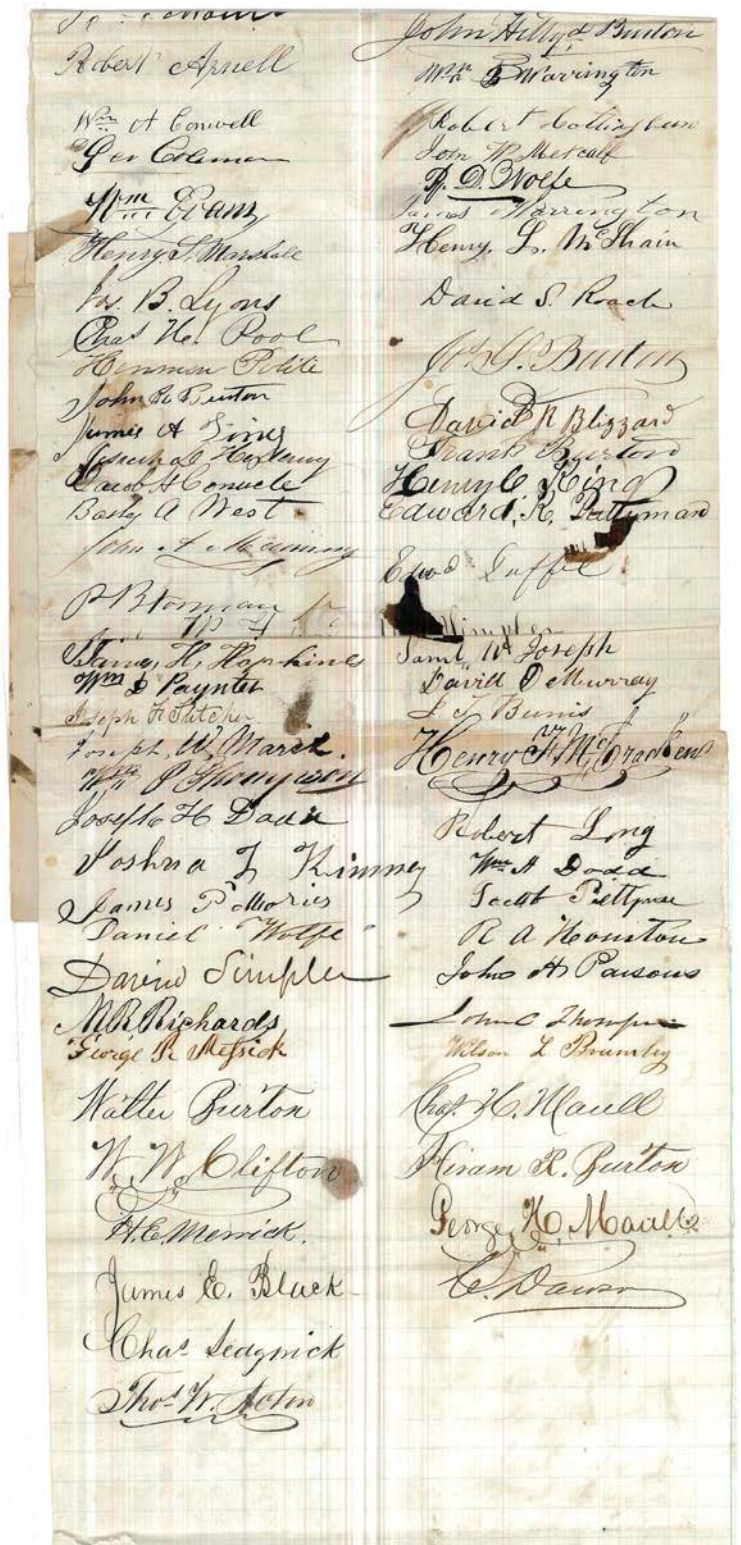 Robert Arnell
Wm A Conwell
Geo Coleman
Wm Evans
Henry S. Marshall
Jos. B. Lyons
Chas H. Pool
Henman Polite
John R Burton
James A
Jacob H Conwele
Baily A West
John A
James H. Hopkines
Wm D Paynter
Joseph H Fletcher
Joseph W. Marsh.
Wm P Thompson
Joseph H Dodd
Joshua J Kimmey
James P Morris
Daniel Wolfe
David Simpler
M R Richards
George R Messick
Walter Burton
W. W. Clifton
H. C. Merrick.
James E. Black
Chas Sedgwick
Thos W. Acton
John Hillyd Burton
Wm B Warrington
Robert
John W Metcalf
R. D. Wolfe
James Warrington
Henry. L. McIlhain
David S. Roach
Jos G. Burton
David R Blizzard
Frank Burton
Henry C King
Edward, R. Prettyman
Simpler
Saml W Joseph
David D Murray
Henry F. McCracken
Robert Long
Wm A Dodd
R A Houston
John H Parsons
John C Thompson
Wilson L Brumley
Chas. H. Maull
Hiram R. Burton
George H. Maull
C. Dawson